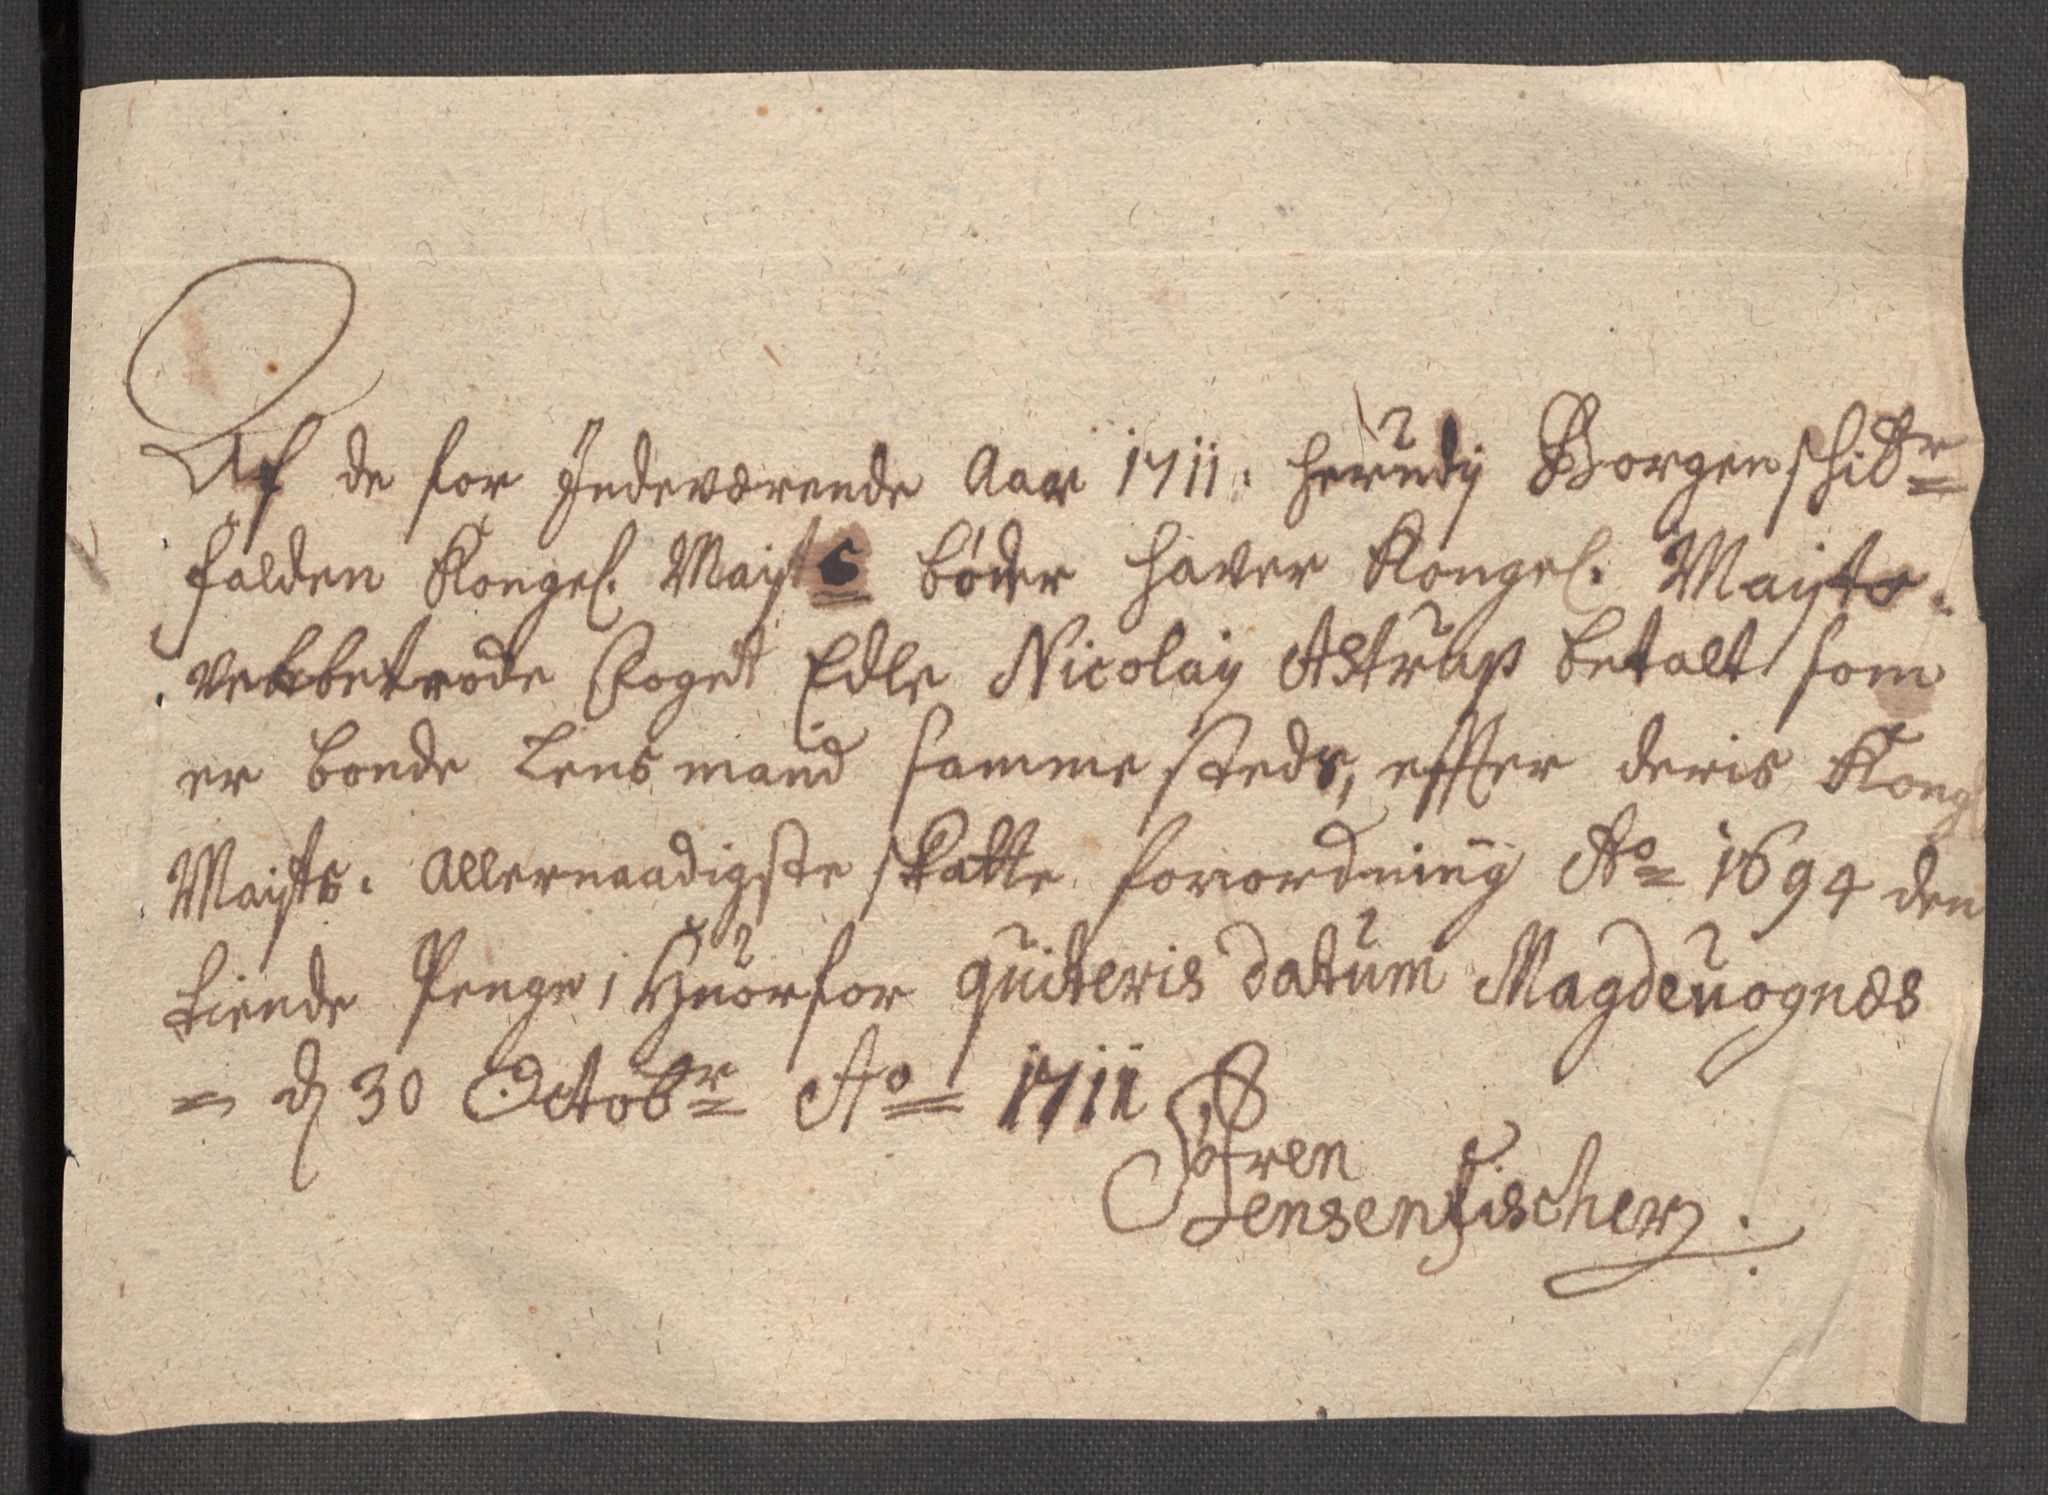 Af de for Indeværende Aar 1711: herudj Borgenschibr
falden Kongel. Mayts bøder haver Kongel. Mayts.
velbetrode Foget Edle Nicolay Astrup betalt som
er bonde Lensmand sammesteds, effter deris Kongl
Mayts. Allernaadigste skatte forordning Ao 1694 den
tiende Penge, Huorfor quiteris datum Magdeuognæs
= d 30 Octobr Ao 1711
Søfren
Jensen Fischer.